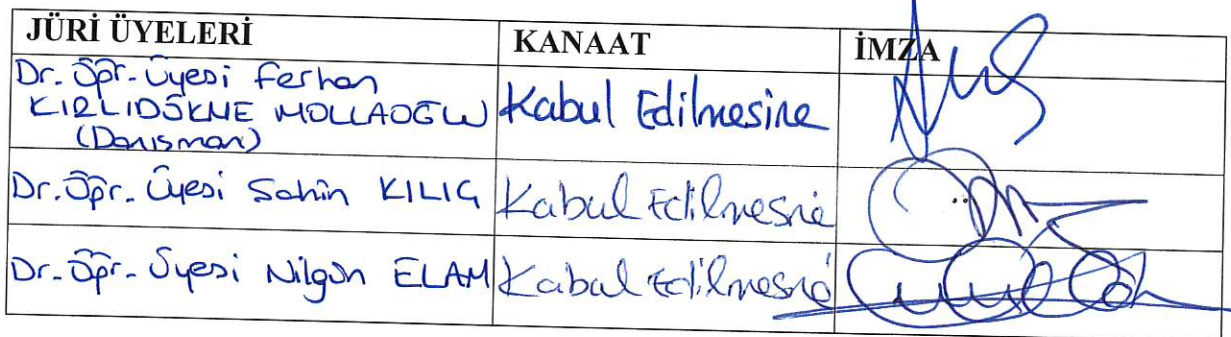 JÜRİ ÜYELERİ KANAAT İMZA
Dr. Öğr. Üyesi Ferhan
KIRLIDÖKME MOLLAOĞLU Kabul Edilmesine
(Danışman)
Dr. Öğr. Üyesi Şahin KILIÇ Kabul Edilmesine
Dr. Öğr. Üyesi Nilgün ELAM Kabul Edilmesine